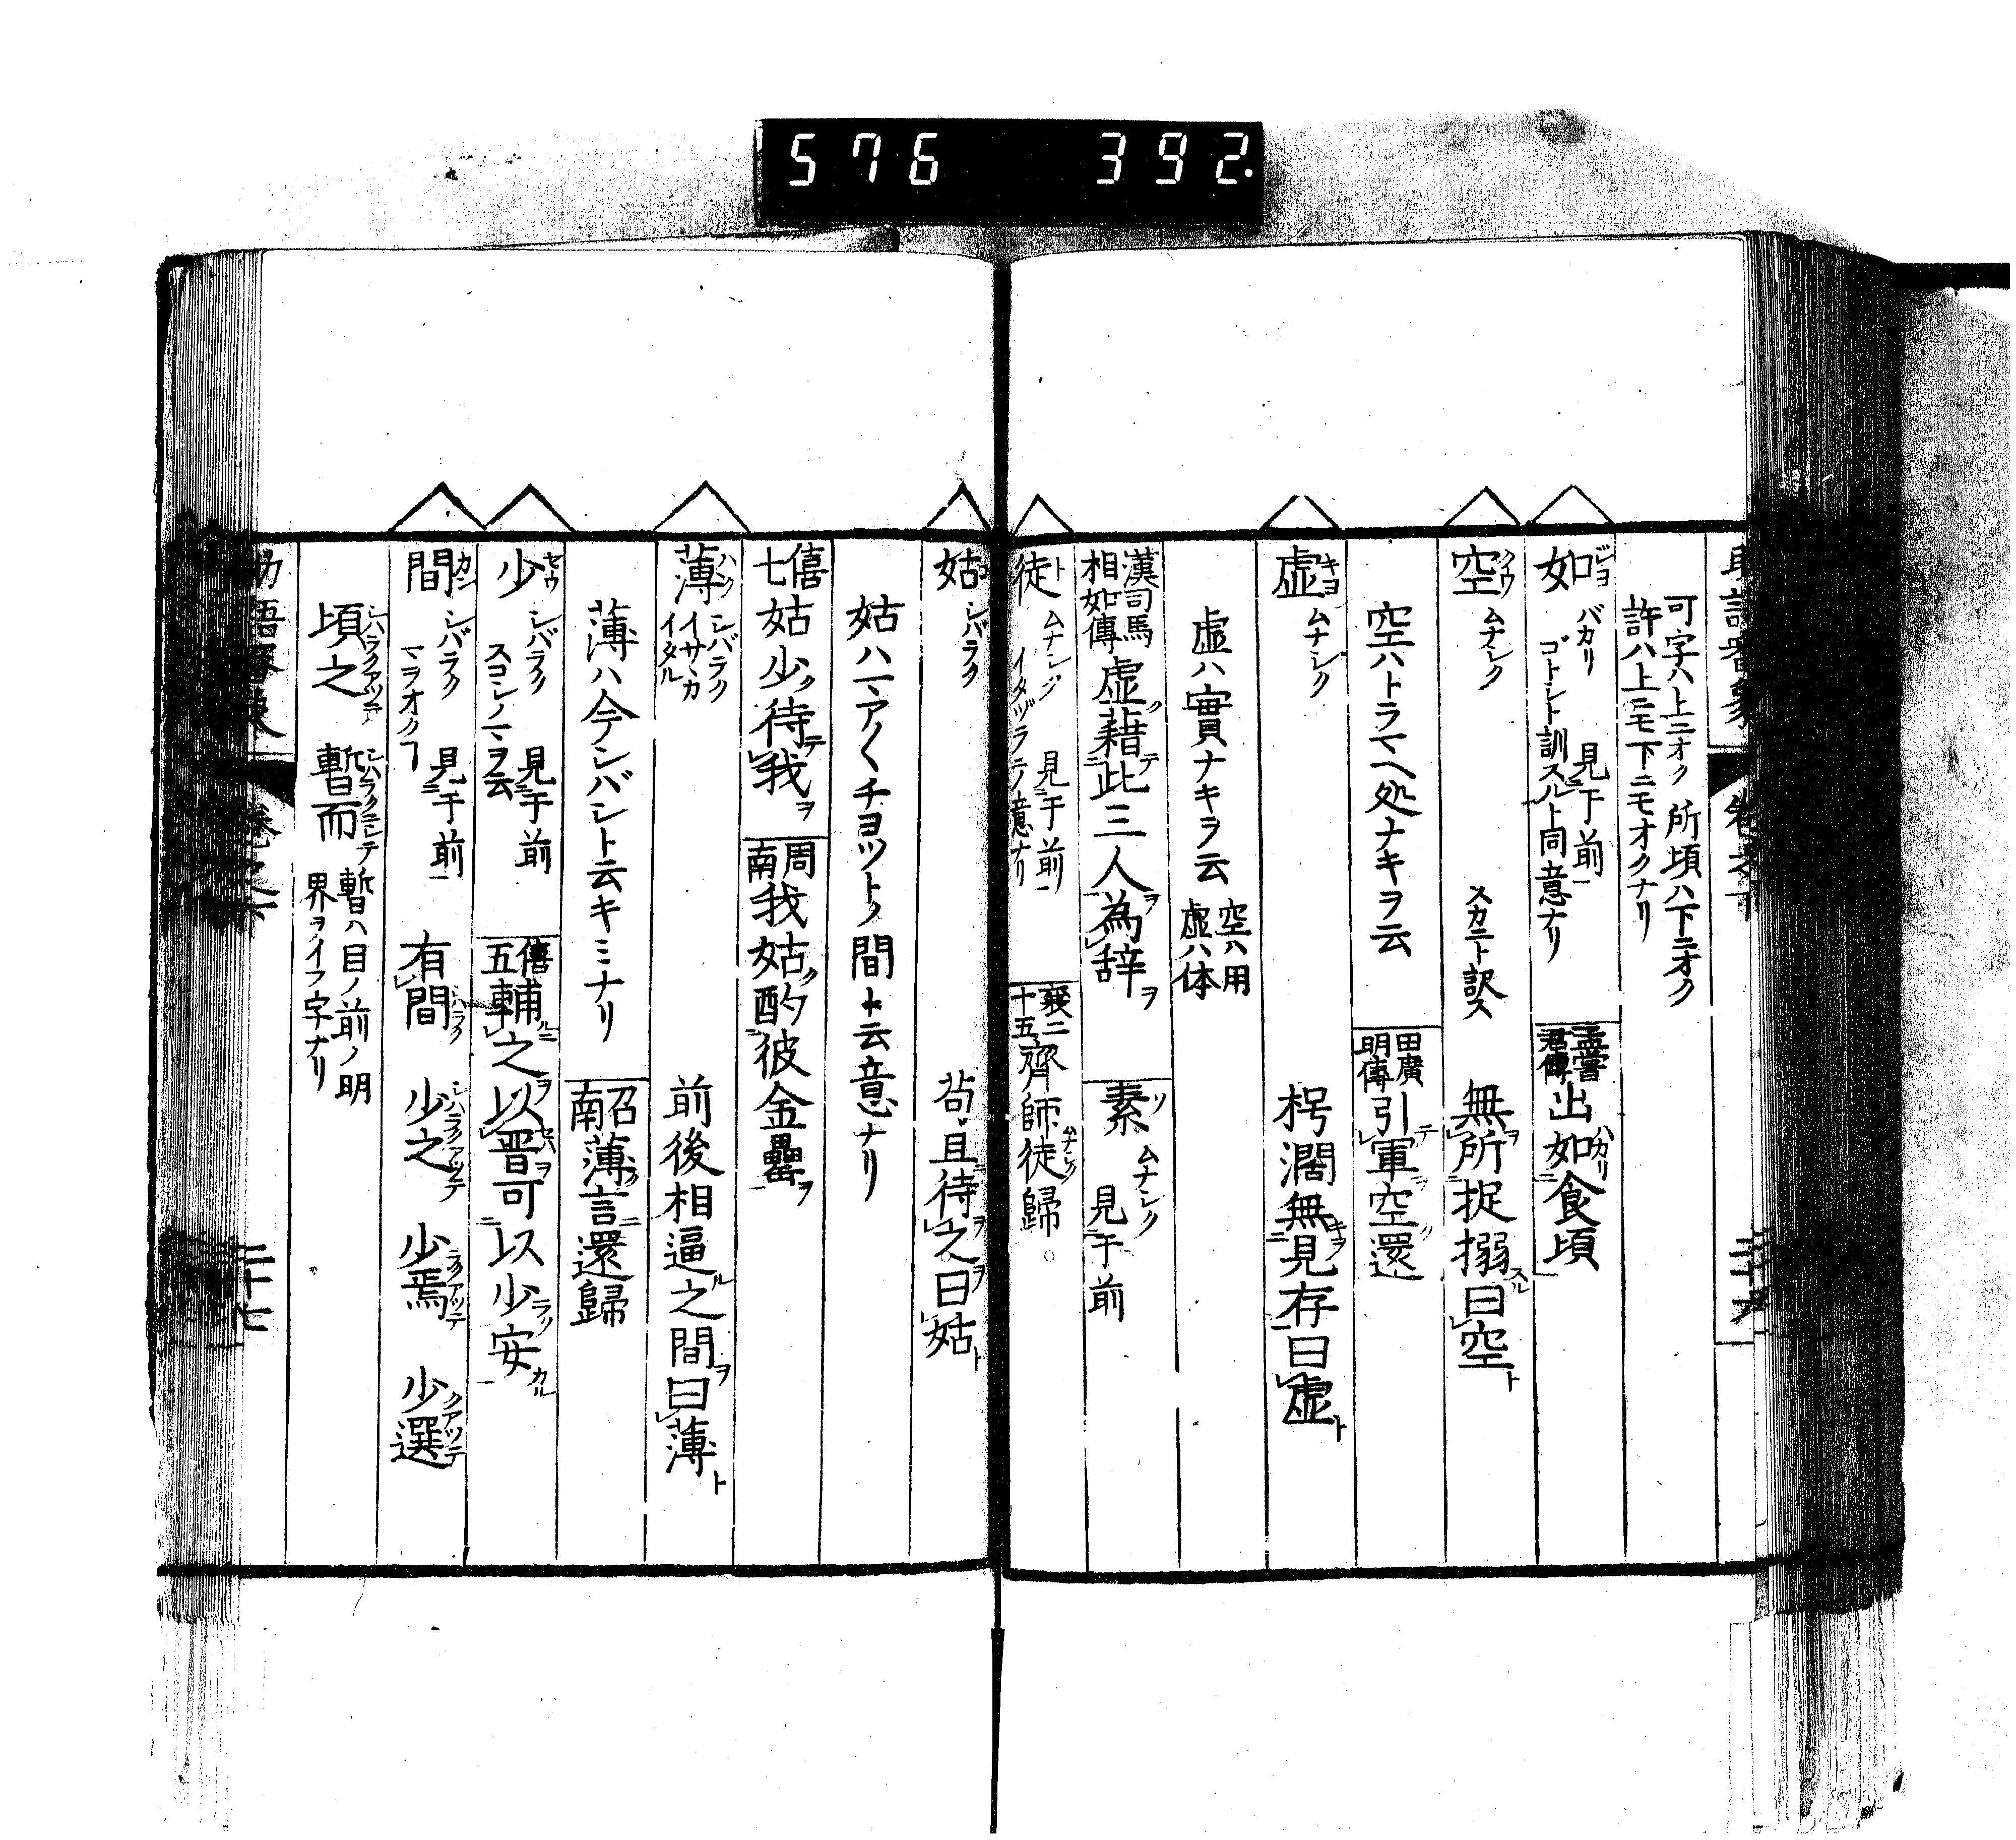 576 392.
可字ハ上ニオク 所頃ハ下ニオク
許ハ上ニモ下ニモオクナリ
如 ジヨ バカリ 見下前
ゴトシト訓スルト同意ナリ
孟嘗君傳 出如食頃
空 クウ ムナシク スカニト訳ス 無所捉搦曰空
空ハトラマヘ処ナキヲ云 田廣明傳 引軍空還
虚 キヨ ムナシク 枵濶無見存曰虚
虚ハ實ナキヲ云 空ハ用 虚ハ体
漢司馬相如傳 虚藉此三人為辞 素 ソ ムナシク 見于前
徒 ト ムナシク 見于前 イタヅラノ意ナリ 襄二十五 齊師徒歸
姑 コ シバラク 苟且待之曰姑
姑ハマアノ〱チヨツトノ間ト云意ナリ
僖七 姑少待我 周南 我姑酌彼金罍
薄 ハク シバラク イサヽカ イタル 前後相逼之間曰薄
薄ハ今シバシト云キミナリ 召南 薄言還歸
少 セウ シバラク 見于前 スコシノマヲ云 僖五 輔之以晋可以少安
間 カン シバラク 見于前 マヲオク 有間 少之 少焉 少選
頃之 シバラクアツテ 暫而 シバラクニシテ 暫ハ目ノ前ノ明
界ヲイフ字ナリ
二十七